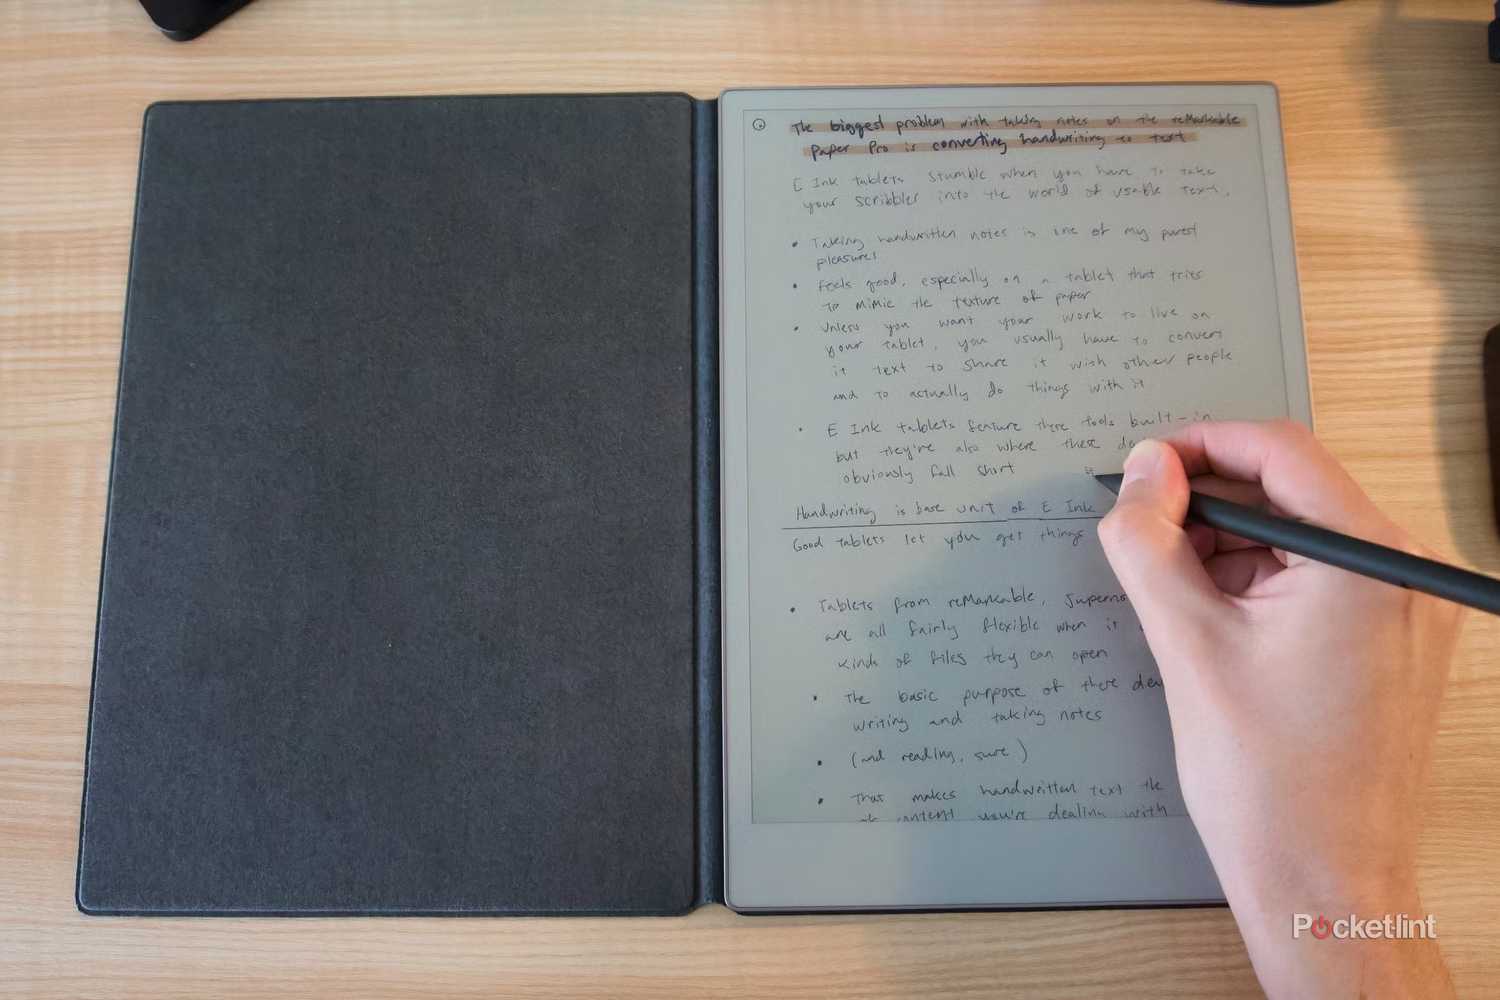 The biggest problem with taking notes on the reMarkable
Paper Pro is converting handwriting to text
E Ink tablets stumble when you have to take
your scribbles into the world of usable text.
• Taking handwritten notes is one of my purest
pleasures
• Feels good, especially on a tablet that tries
to mimic the texture of paper
• Unless you want your work to live on
your tablet, you usually have to convert
it text to share it with other people
and to actually do things with it
• E Ink tablets feature these tools built-in
but they're also where these
obviously fall short
Handwriting is base unit of E Ink
Good tablets let you get things
• Tablets from reMarkable,
are all fairly flexible when it
kinds of files they can open
• The basic purpose of these
writing and taking notes
• (and reading, sure)
• That makes handwritten text the
of content you're dealing with
Pocketlint